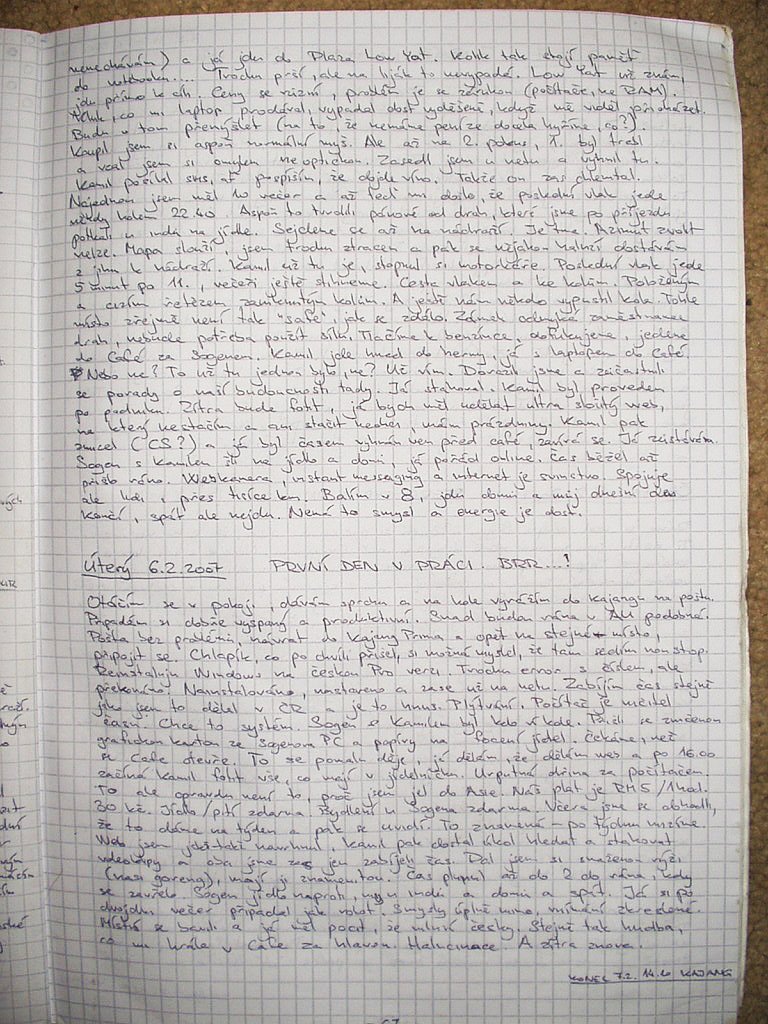 nenechávám) a já jdu do Plaza Low Yat. Kolik tak stojí paměť
do notebooku.... Trochu prší, ale na liják to nevypadá. Low Yat už znám,
jdu přímo k cíli. Ceny se různí, problém je se zárukou (počítače, ne RAM).
co mi laptop prodával, vypadal dost vyděšeně, když mě viděl přicházet.
Budu o tom přemýšlet (na to, že nemáme peníze docela hýříme, co?).
Koupil jsem si aspoň normální myš. Ale až na 2. pokus, 1. byl
a vzal jsem si omylem neoptickou. Zasedl jsem u netu a vyhnil tu.
Kamil posílal sms, ať pospíším, že objede víno. Takže on zas chlemtal.
Najednou jsem měl 10 večer a až teď mi došlo, že poslední vlak jede
někdy kolem 22.40. Aspoň to tvrdili pánové od drah, které jsme po příjezdu
potkali u indů na jídle. Sejdeme se až na nádraží. Je tma. Azimut zvolit
nelze. Mapa slouží, jsem trochu ztracen a pak se nějakou náhodou dostávám
z jihu k nádraží. Kamil už tu je, stopnul si motorkáře. Poslední vlak jede
5 minut po 11., večeři ještě stihneme. Cesta vlakem a ke kolům. Položeným
a cizím řetězem zamknutým kolům. A ještě nám někdo vypustil kola. Tohle
místo zřejmě není tak "safe", jak se zdálo. Zámek odemyká zaměstnanec
drah, nebude potřeba použít sílu. Tlačíme k benzínce, dofukujeme, jedeme
do Café za Sogenem. Kamil jde hned do herny, já s laptopem do Café.
Nebo ne? To už tu jednou bylo, ne? Už vím. Dorazili jsme a zúčastnili
se porady o naší budoucnosti tady. Já stahoval. Kamil byl proveden
po podniku. Zítra bude fotit, já bych měl udělat ultra složitý web,
na který nestačím a ani stačit nechci, mám prázdniny. Kamil pak
zmizel (CS?) a já byl časem vyhnán ven před café, zavírá se. Já zůstávám.
Sogen s Kamilem šli na jídlo a domů, já pořád online. Čas běžel až
přišlo ráno. Webkamera, instant messaging a internet je svinstvo. Spojuje
ale lidi i přes tisíce km. Balím v 8, jdu domů a můj dnešní den
končí, spát ale nejdu. Nemá to smysl a energie je dost.
Úterý 6.2.2007 PRVNÍ DEN V PRÁCI. BRR...!
Otáčím se v pokoji, dávám sprchu a na kole vyrážím do Kajangu na poštu.
Připadám si dobře vyspaný a produktivní. Snad budou rána v AU podobná.
Pošta bez problémů, návrat do Kajang Prima a opět na stejné místo,
připojit se. Chlapík, co po chvíli přišel, si možná myslel, že tam sedím nonstop.
Reinstaluju Windows na českou Pro verzi. Trochu error s číslem, ale
překonáno. Nainstalováno, nastaveno a zase už na netu. Zabíjím čas stejně
jako jsem to dělal v ČR a je to hnus. Plýtvání. Počítač je ničitel
času. Chce to systém. Sogen s Kamilem byl kdo ví kde. Přišli se zničenou
grafickou kartou ze Sogenova PC a papíry na focení jídel. Čekáme, než
se Cafe otevře. To se pomalu děje, já dělám, že dělám web a po 16.00
začíná Kamil fotit vše, co mají v jídelníčku. Urputná dřina za počítačem.
To ale opravdu není to, proč jsem jel do Asie. Náš plat je RM5/1hod.
30 Kč. Jídlo/pití zdarma. Bydlení u Sogena zdarma. Včera jsme se dohodli,
že to dáme na týden a pak se uvidí. To znamená - po týdnu mizíme.
Web jsem jakž-takž navrhnul, Kamil pak dostal úkol hledat a stahovat
videoklipy a oba jsme zas jen zabíjeli čas. Dal jsem si smaženou rýži
(nasi goreng), mají ji znamenitou. Čas plynul až do 2 do rána, kdy
se zavřelo. Sogen jídlo naproti, my u indů a domů a spát. Já si po
dvojdnu večer připadal jak robot. Smysly úplně mimo, vnímání zkreslené.
Místní se bavili a já měl pocit, že mluví česky. Stejně tak hudba,
co mi hrála v Cafe za hlavou. Halucinace. A zítra znova.
KONEC 7.2. 14.10 KAJANG
67